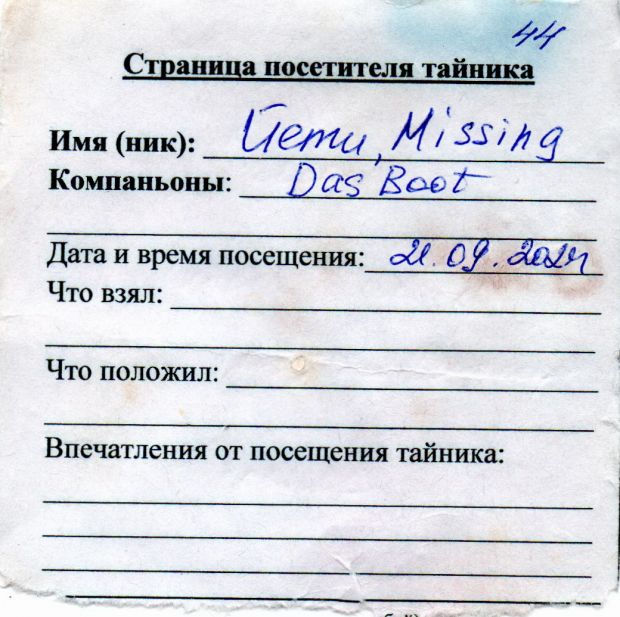 44
Страница посетителя тайника
Имя (ник): Йети, Missing
Компаньоны: Das Boot
Дата и время посещения: 21.09.2024
Что взял:
Что положил:
Впечатления от посещения тайника: